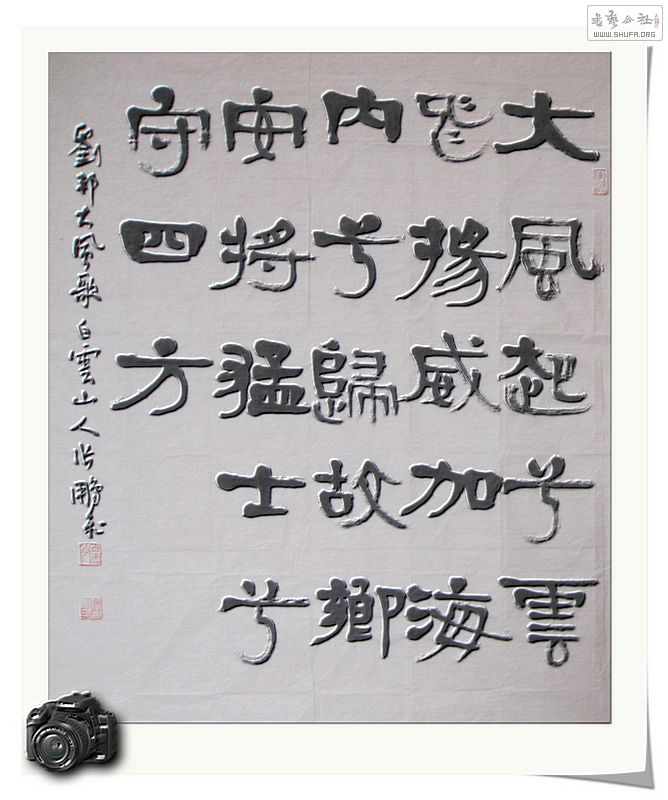 書藝公社
WWW.SHUFA.ORG
大風起兮雲
飛揚威加海
内兮歸故鄉
安將猛士兮
守四方
劉邦大風歌白雲山人張鵬